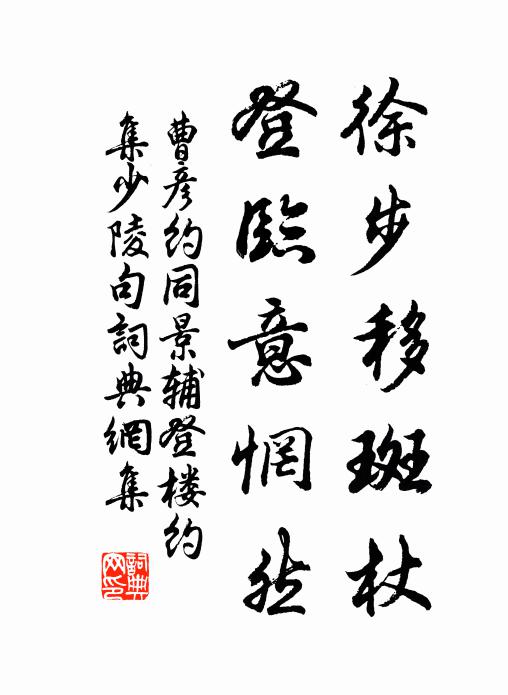 徐步移斑杖
登臨意惘然
曹彦約同景辅登楼約
集少陵句詞典網集
詞典
网印